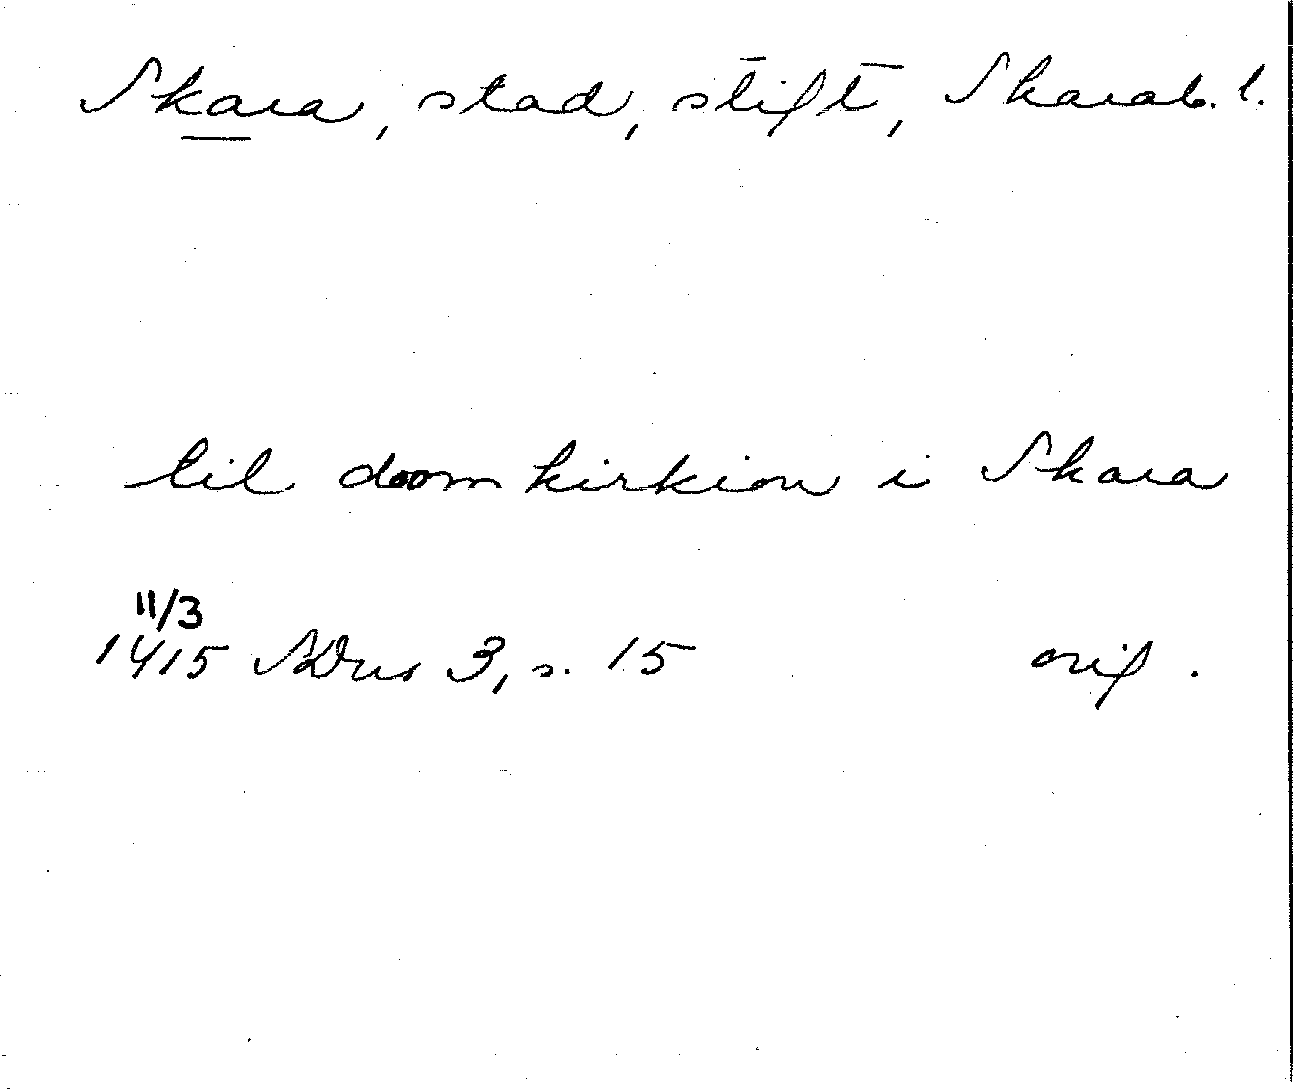 Skara, stad, stift, Skarab. l.
til doomkirkion i Skara
11/3
1415 SDns 3, s. 15 orig.